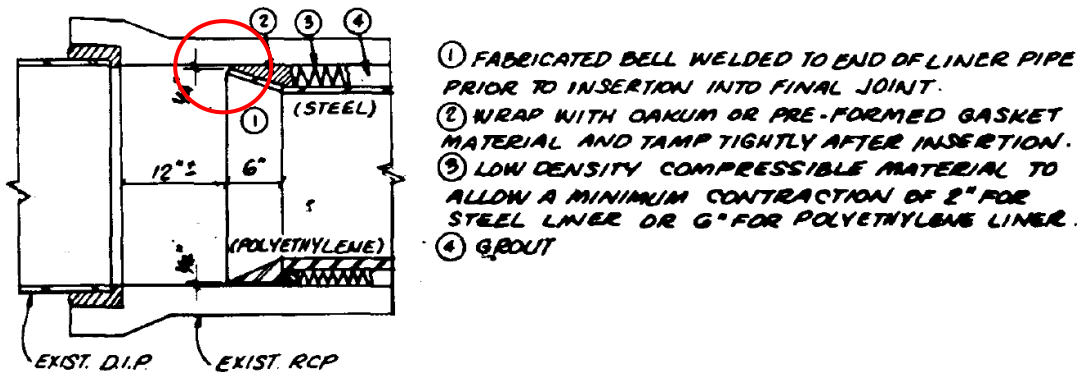 ② ③ ④
(STEEL)
①
12"± 6"
(POLYETHYLENE)
EXIST. D.I.P. EXIST. RCP
① FABRICATED BELL WELDED TO END OF LINER PIPE
PRIOR TO INSERTION INTO FINAL JOINT.
② WRAP WITH OAKUM OR PRE-FORMED GASKET
MATERIAL AND TAMP TIGHTLY AFTER INSERTION.
③ LOW DENSITY COMPRESSIBLE MATERIAL TO
ALLOW A MINIMUM CONTRACTION OF 2" FOR
STEEL LINER OR 6" FOR POLYETHYLENE LINER.
④ GROUT